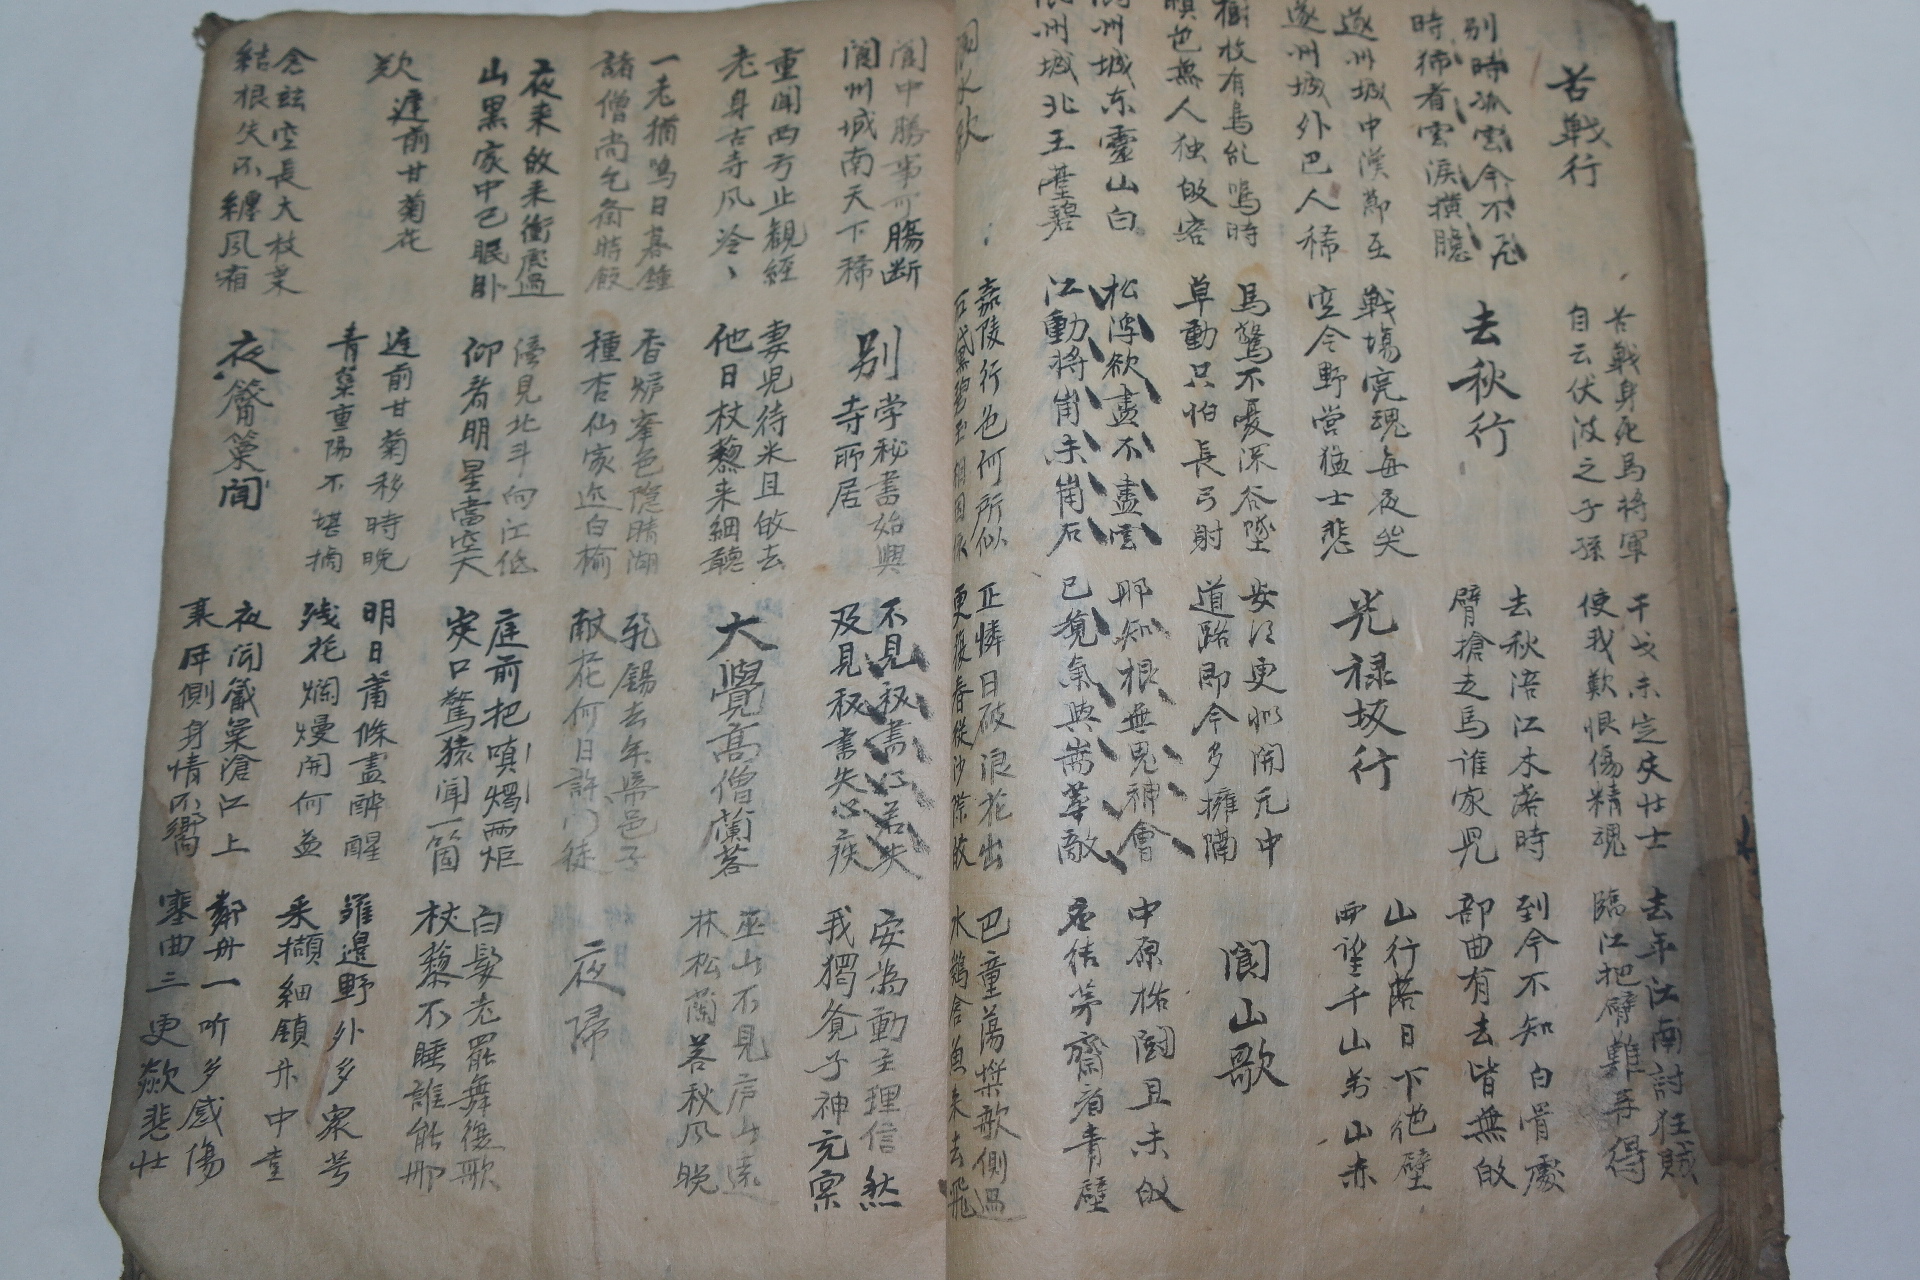 苦戰行
苦戰身死馬將軍
自云伏波之子孫
干戈未定失壯士
使我歎恨傷精魂
去年江南討狂賊
臨江把臂難再得
別時孤雲今不飛
時獨看雲淚橫臆
去秋行
去秋涪江木落時
臂搶走馬誰家兒
到今不知白骨處
部曲有去皆無敀
遂州城中漢節至
遂州城外巴人稀
戰塲寃魂每夜哭
空令野營猛士悲
光祿坂行
山行落日下絶壁
西望千山萬山赤
樹枝有鳥乱鳴時
暝色無人独敀客
馬驚不憂深谷墜
草動只怕長弓射
安得更似開元中
道路即今多擁隔
閬山歌
閬州城东靈山白
閬州城北玉臺碧
松浮欲盡不盡雲
江動將崩未崩石
那知根無鬼神會
已覺氣與嵩華敵
中原格鬪且未敀
應結茅齋看青壁
閬水歌
嘉陵行色何所似
石黛碧玉相因依
正憐日破浪花出
更復春從沙際敀
巴童蕩槳欹側過
水鷄含魚来去飛
閬中勝事可腸断
閬州城南天下稀
別李秘書始興寺所居
不見秘書心若失
及見秘書失心疾
安為動主理信然
我獨覓子神充実
重聞西方止観経
老身古寺风泠、
妻児待米且敀去
他日杖藜来細聽
大覺高僧蘭若
巫山不見庐山遠
林松蘭若秋风晚
一老猶鳴日暮鍾
諸僧尚乞斋時飯
香炉峯色隐晴湖
種杏仙家近白榆
飛錫去年啼邑子
献花何日許门徒
夜帰
夜来敀来衝虎過
山黒家中已眠卧
傍見北斗向江低
仰看明星當空大
庭前把嗔燭兩炬
峽口驚猿聞一箇
白髮老罷舞復歌
杖藜不睡誰能那
歎庭前甘菊花
庭前甘菊移時晚
青蘂重陽不堪摘
明日蕭條盡醉醒
残花爛熳開何益
籬邊野外多衆芳
采擷細鎖升中堂
念兹空長大枝葉
結根失不纏风霜
夜觱篥聞
夜聞觱篥滄江上
衰年側身情所嚮
鄰舟一听多感傷
塞曲三更欻悲壮